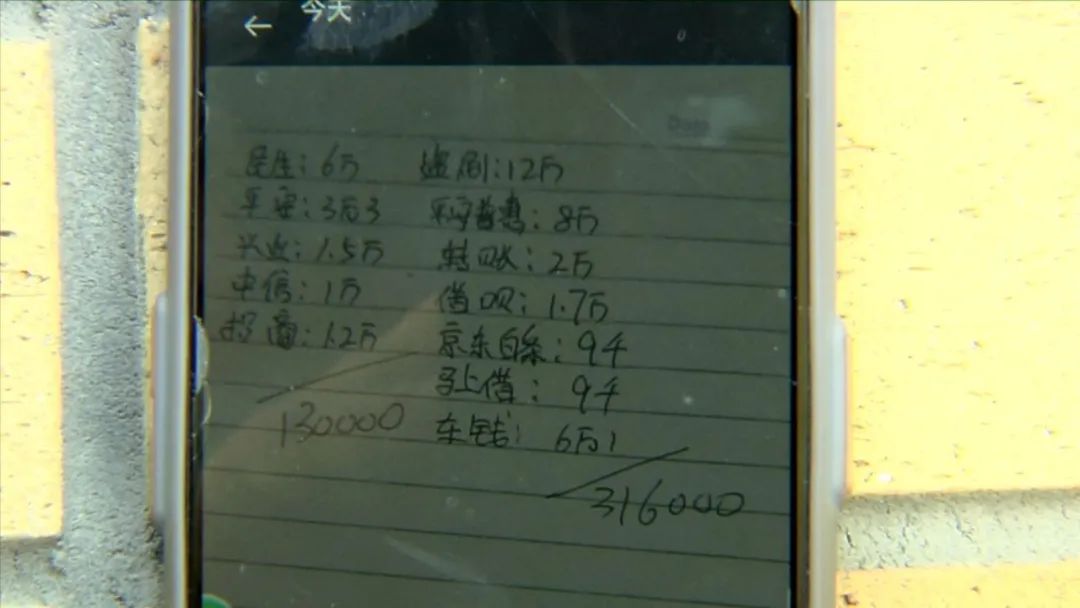 今天
Date
民生:6万
平安:3万3
兴业:1.5万
中信:1万
招商:1.2万
130000
盗刷:12万
平安普惠:8万
转账:2万
借呗:1.7万
京东白条:9千
马上借:9千
车钱:6万1
316000